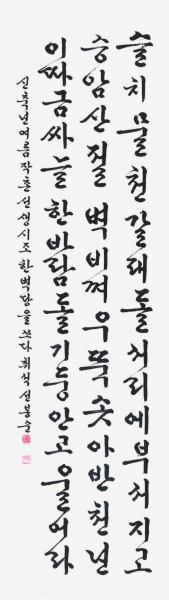 슬치물천갈래돌치리에부처지고
승암산절벽비껴우뚝솟아반천년
이따금싸늘한바람돌기둥안고울어라
신축년여름작촌선생시조한벽당을쓰다취석선봉순